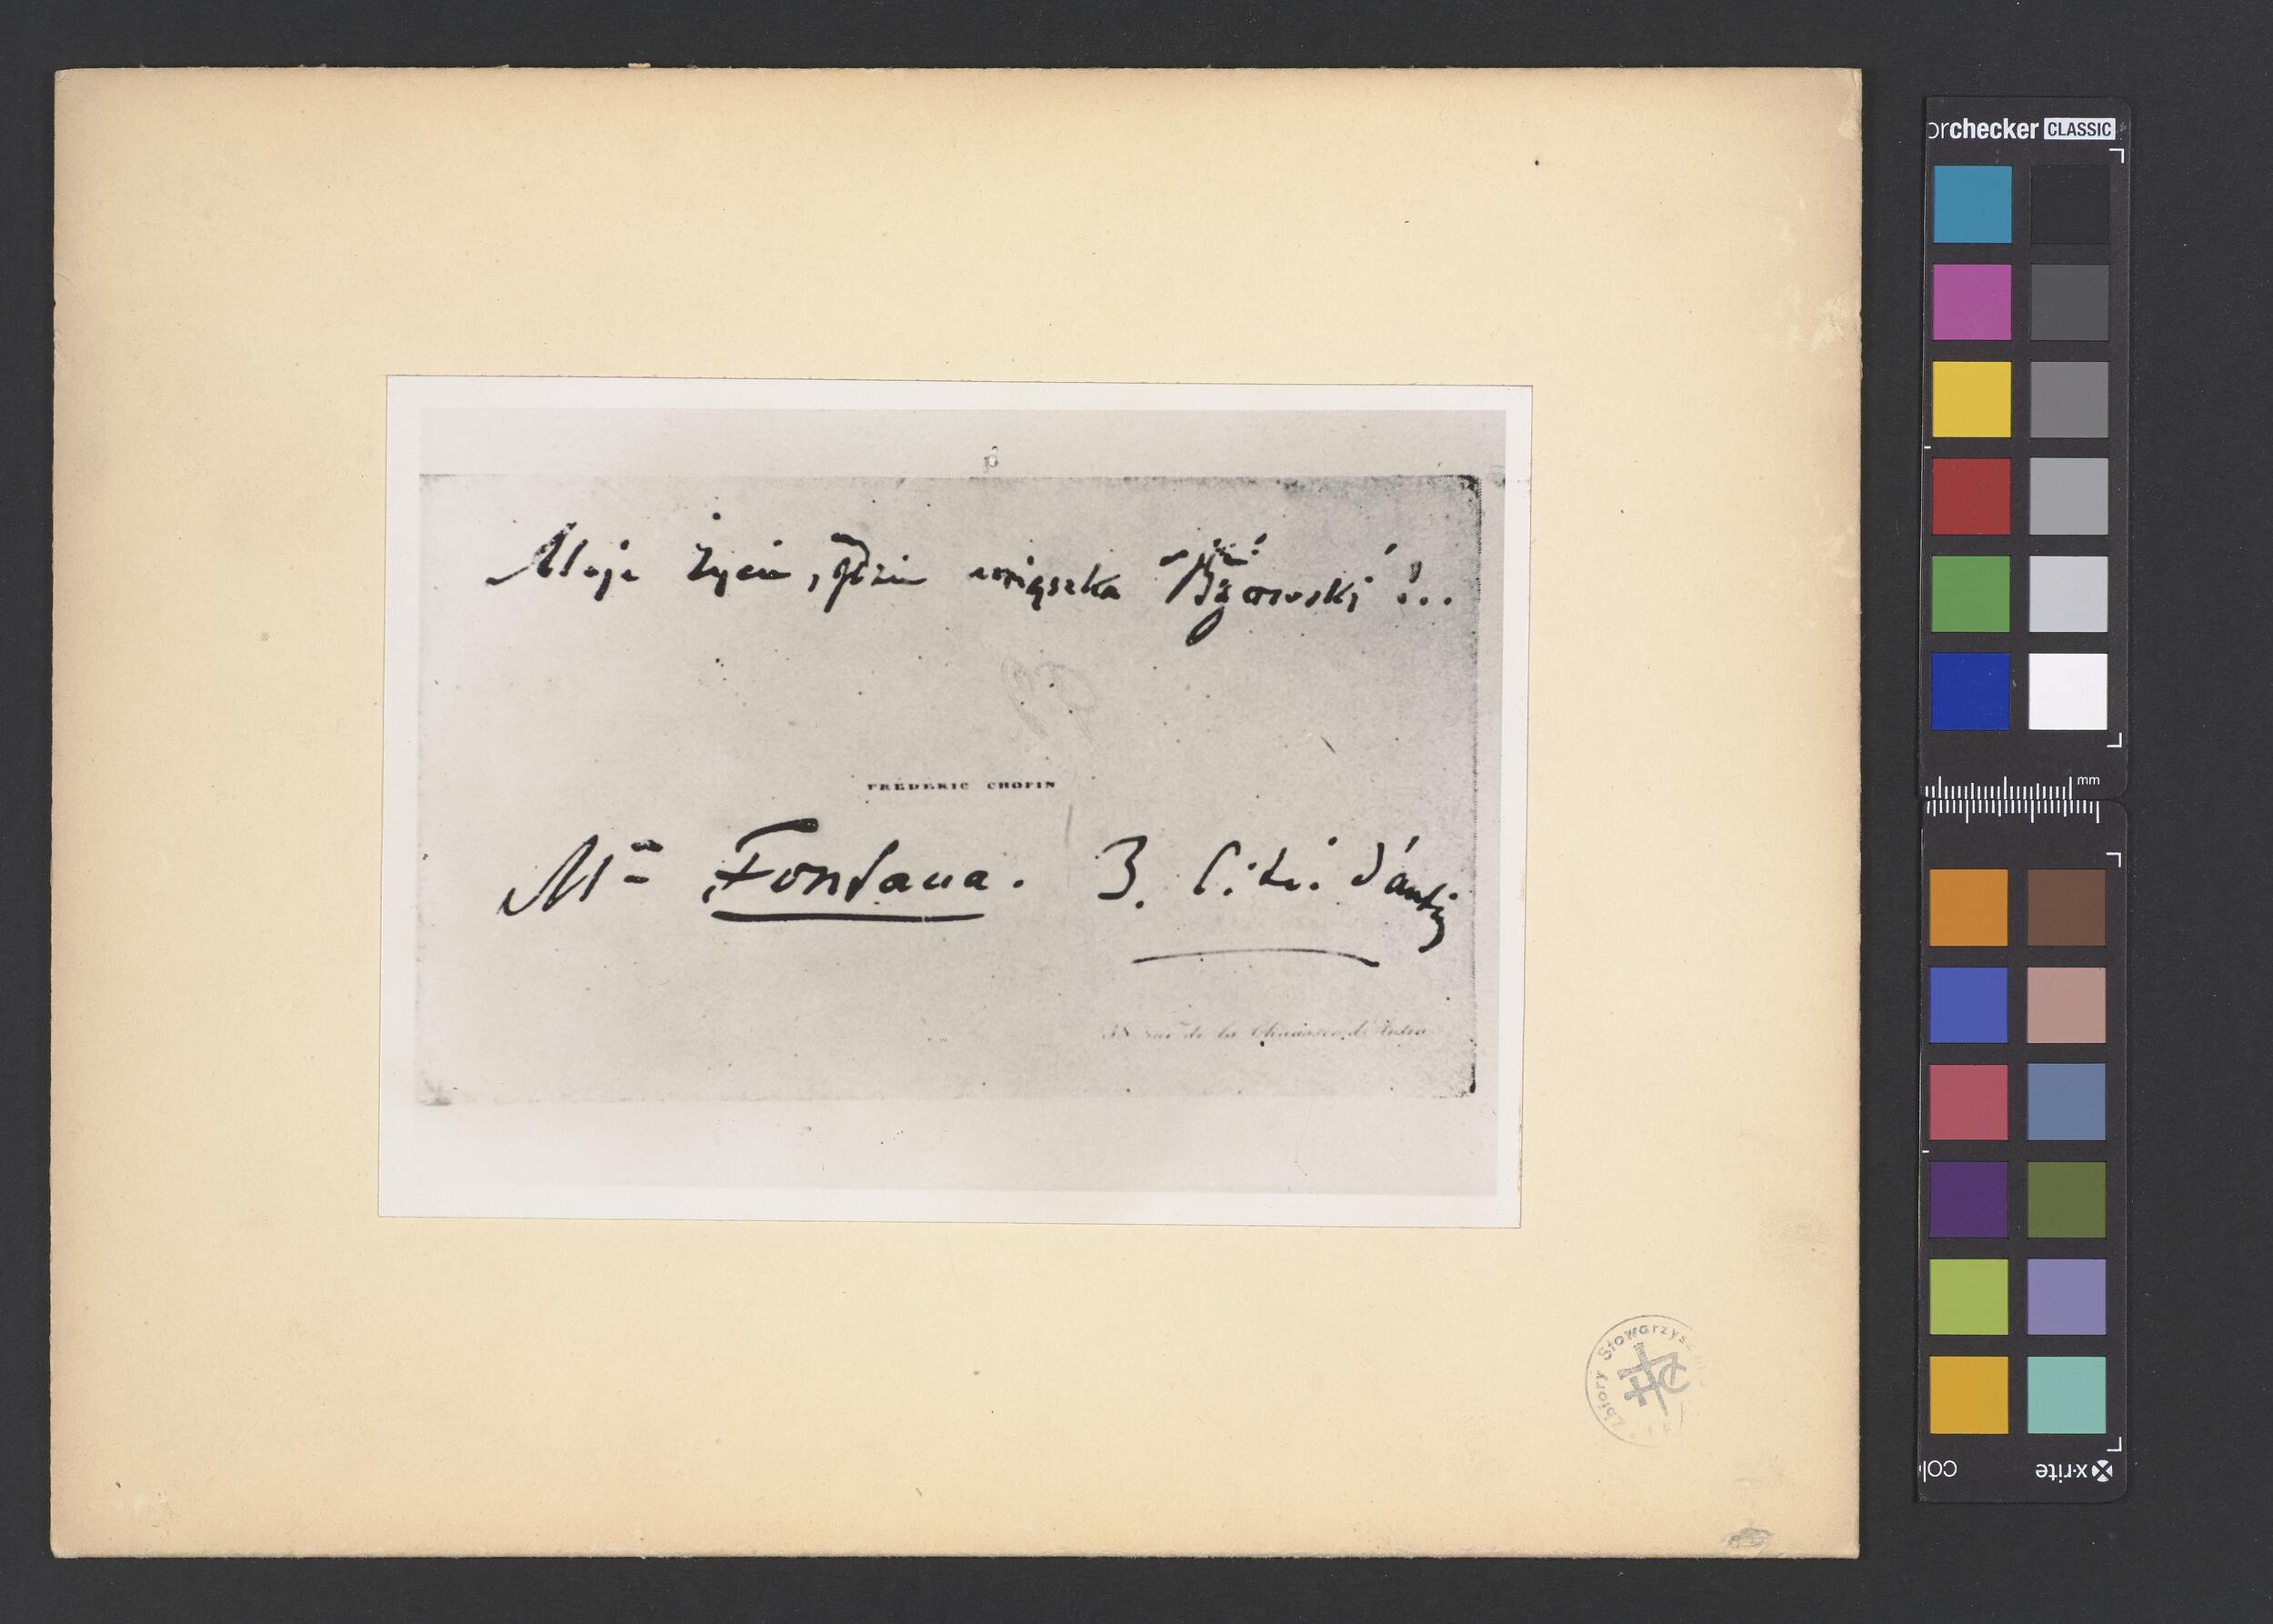 Moje życie, gdzie mieszka Brzowski!...
FRÉDÉRIC CHOPIN
Mr Fontana. 3. Cité d'antin
38 rue de la Chaussée d'Antin
Zbiory Stowarzysz
orchecker CLASSIC
mm
x-rite
col